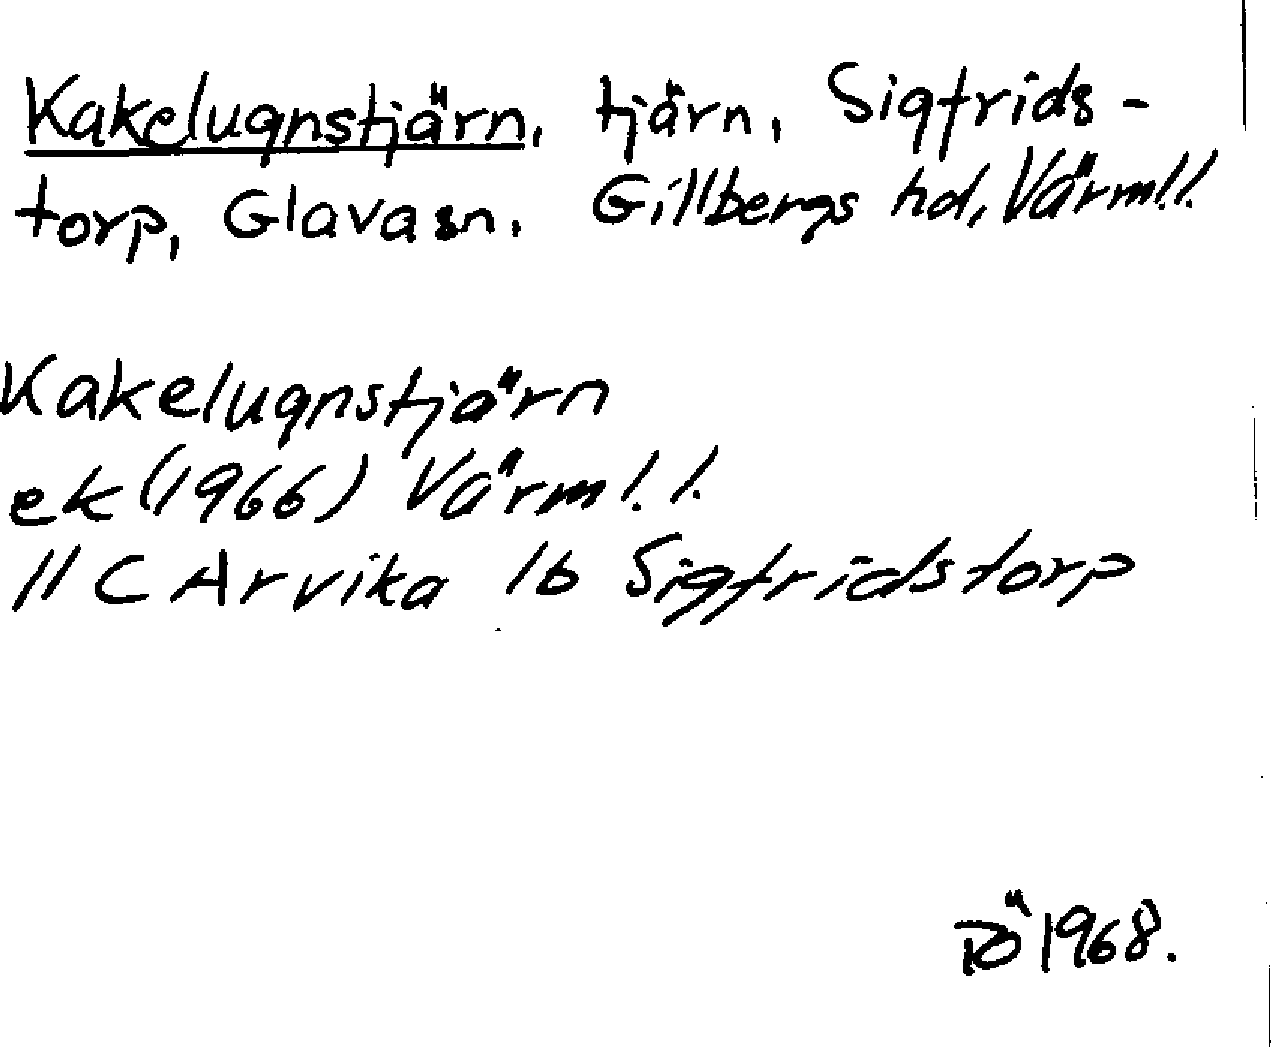 Kakelugnstjärn, tjärn, Sigfrids-
torp, Glava sn. Gillbergs hd, Värml.l.
Kakelugnstjärn
ek (1966) Värml.l.
11 C Arvika 1b Sigfridstorp
RÖ 1968.